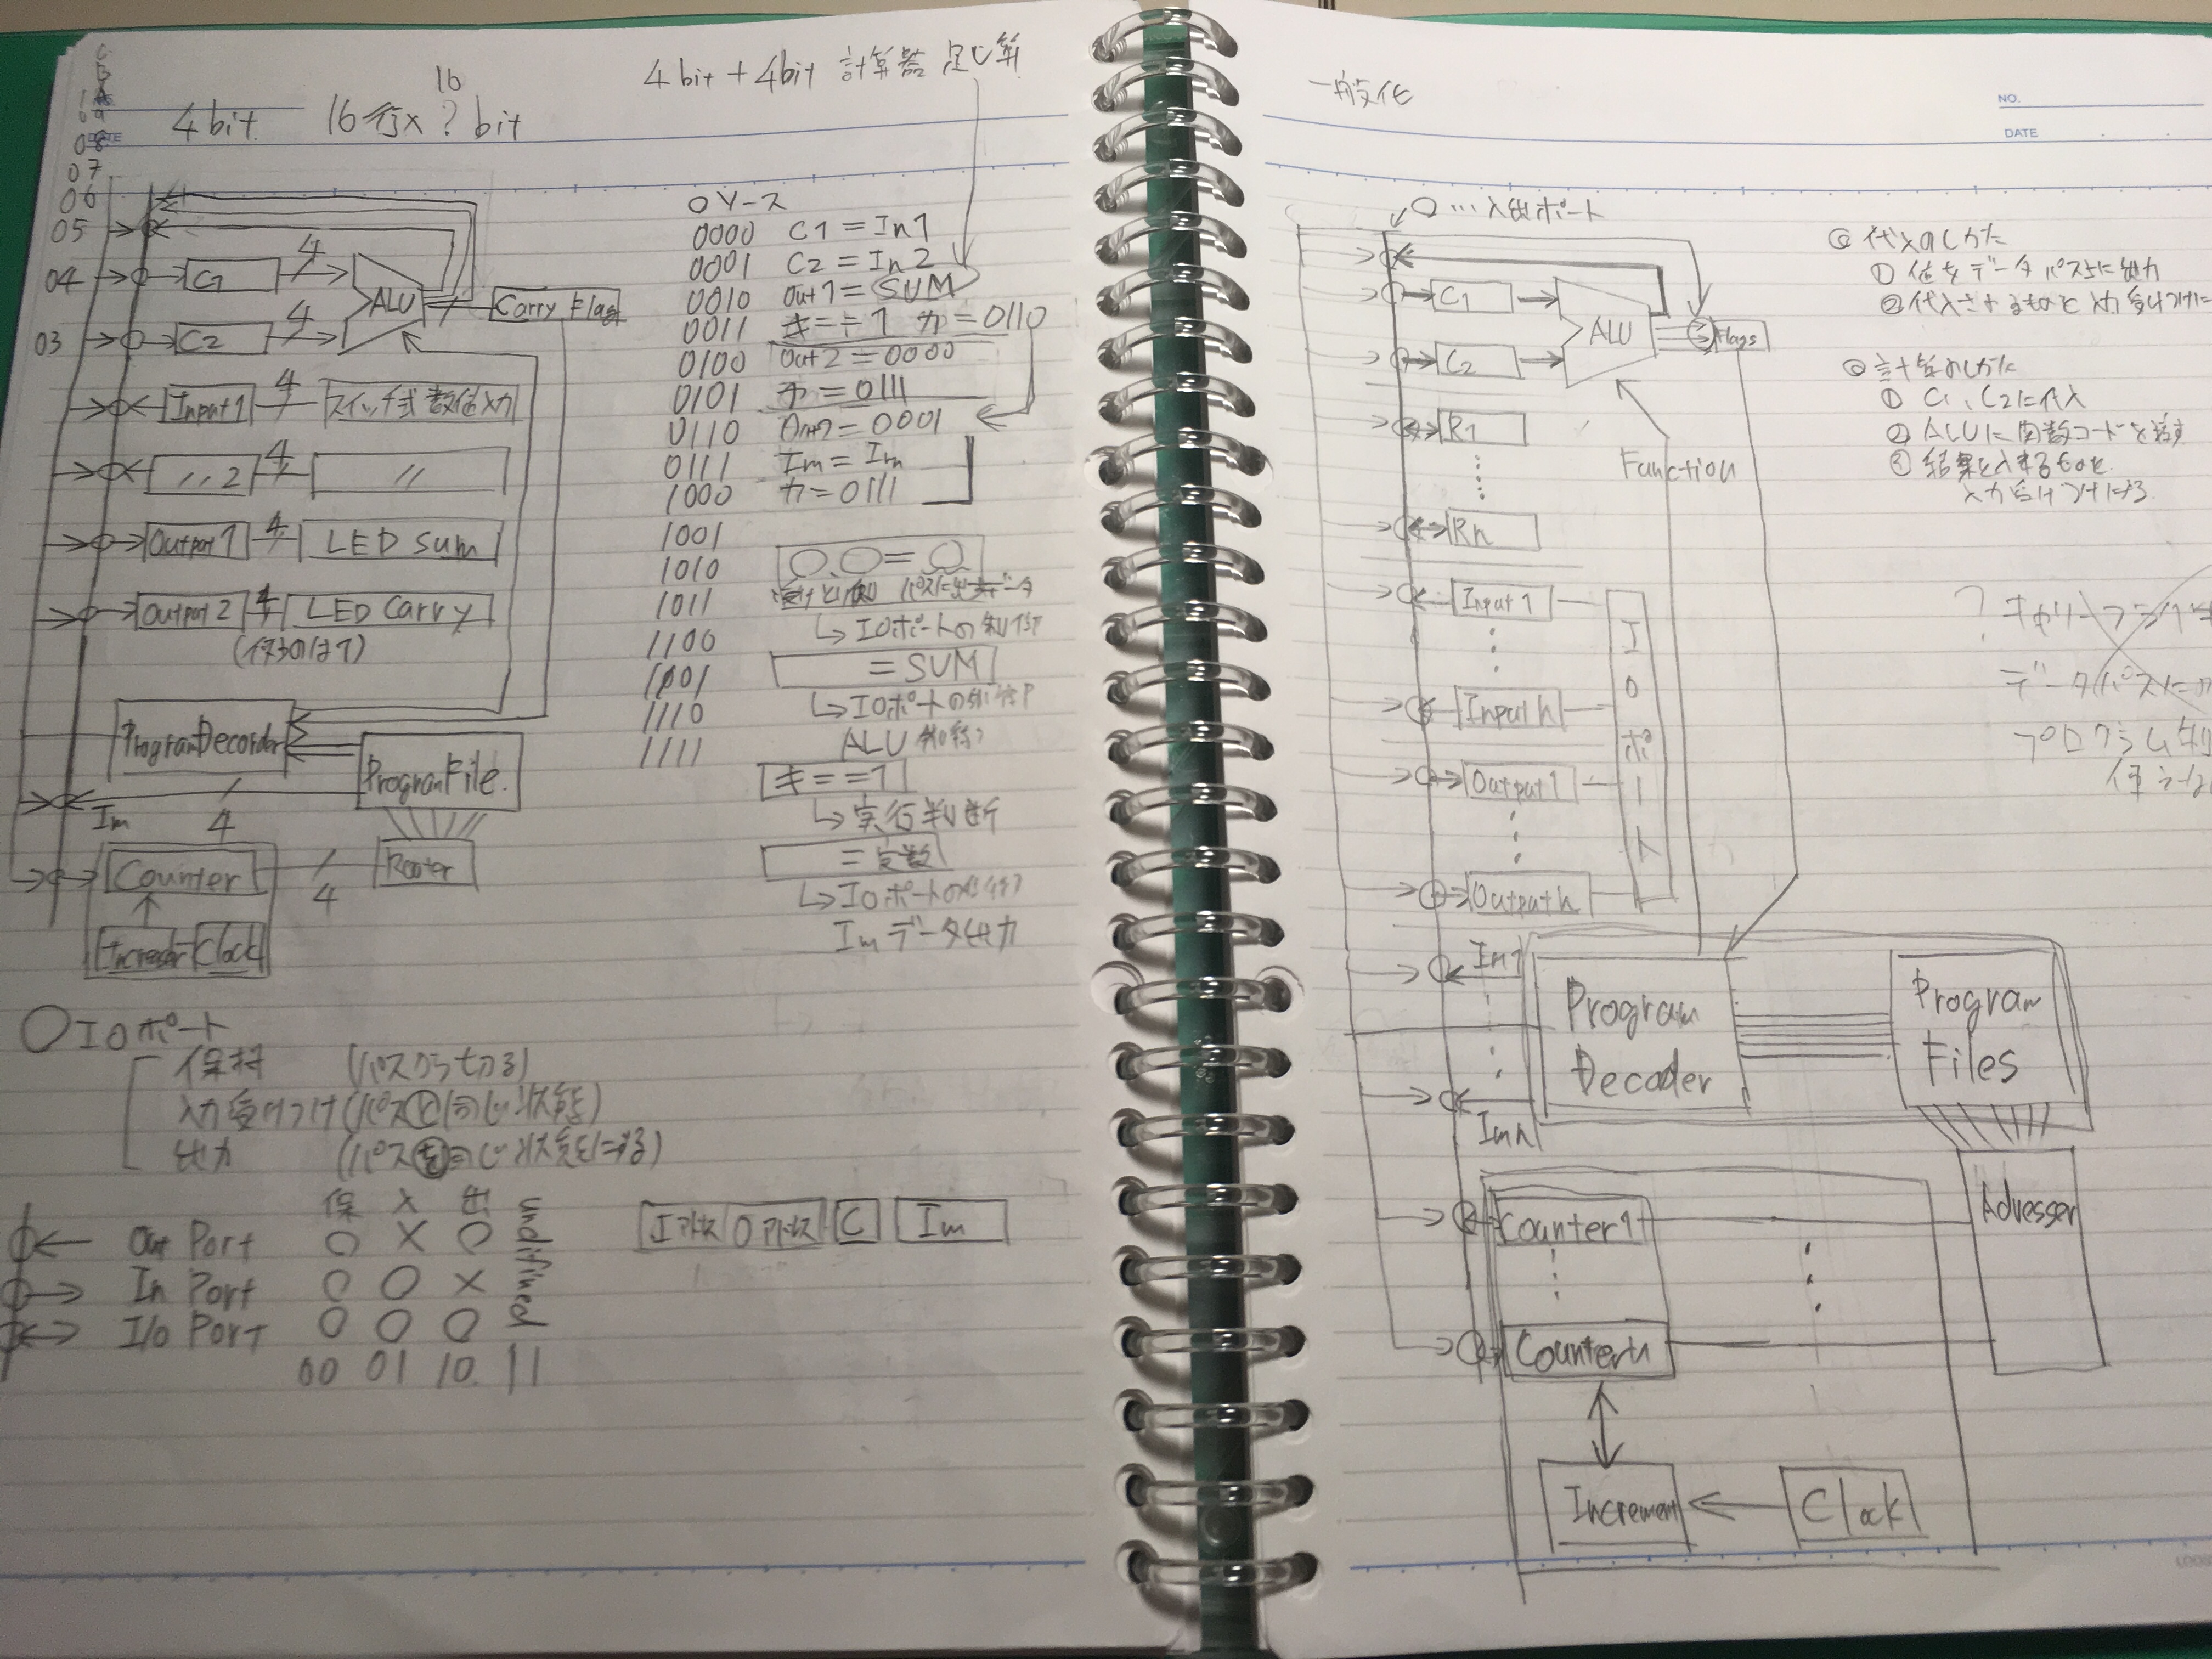 4bit 16行× ? bit
16
4bit+4bit 計算器 足し算
07
06
05
04
03
C1
4
C2
4
ALU
Carry Flag
Input1
4
スイッチ式数値入力
〃 2
4
〃
Output1
4
LED sum
Output2
4
LED Carry
(余るのは1)
Program Decorder
Program File.
Im
4
Counter
4
Rooter
Clock
0000 C1=In1
0001 C2=In2
0010 Out1=SUM
0011 キ==1 カ=0110
0100 Out2=0000
0101 カ=0111
0110 Out2=0001
0111 Im=Im
1000 カ=0111
1001
1010
1011
1100
1110
1111
○.○=○
IOポートの制御
=SUM
IOポートの制御
ALU 制御
キ==1
実行判断
=定数
IOポートの制御
Imデータ出力
○IOポート
保持 (バスから切る)
入力受けつけ(バスと同じ状態)
出力 (バスを同じ状態にする)
保 入 出 undifined
Out Port ○ × ○
In Port ○ ○ ×
I/o Port ○ ○ ○
00 01 10 11
Iアドレス Oアドレス C Im
一般化
NO.
DATE
○…入出ポート
C1
C2
ALU
Flags
Function
R1
Rn
Input1
Input n
Output1
Output n
IOポート
Im1
Imn
Program Decoder
Program Files
Adresser
Counter1
Counter n
Increment
Clock
◎ 代入のしかた
① 値をデータバスに出力
② 代入されるものを入力受けつけに
◎ 計算のしかた
① C1、C2に代入
② ALUに関数コードを渡す
③ 結果を入れるものを
入力受けつけにする
? キャリーフラグ
データバスに
プログラム